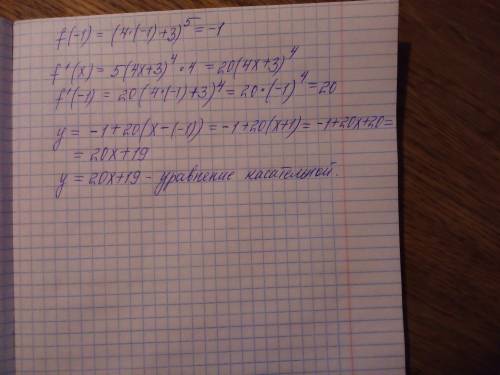 f(-1) = (4·(-1)+3)⁵ = -1
f'(x) = 5(4x+3)⁴·4 = 20(4x+3)⁴
f'(-1) = 20(4·(-1)+3)⁴ = 20·(-1)⁴ = 20
y = -1+20(x-(-1)) = -1+20(x+1) = -1+20x+20 =
= 20x+19
y = 20x+19 - уравнение касательной.